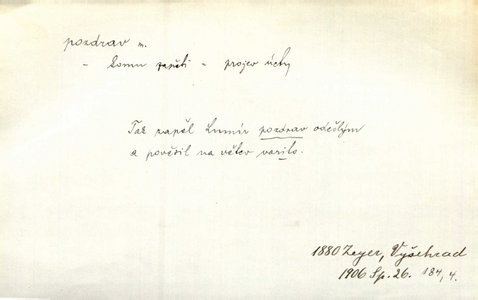 pozdrav m.
- komu zapěti - projev úcty
Tak zapěl Lumír pozdrav odešlým
a pověsil na větev varito.
1880 Zeyer, Vyšehrad
1906 Sp. 26. 184, 4.